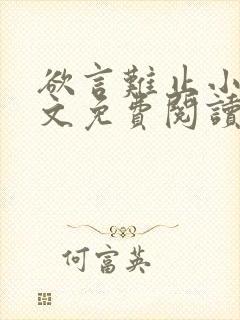 欲言難止小
文免費閱讀
何富英